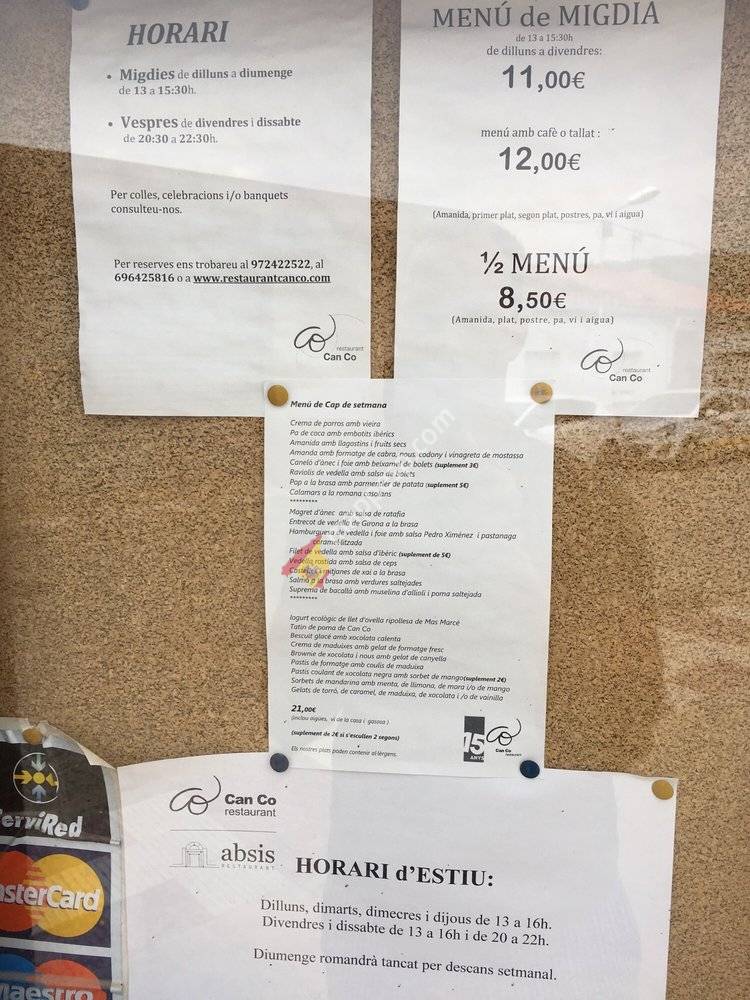 HORARI
• Migdies de dilluns a diumenge
de 13 a 15:30h.
• Vespres de divendres i dissabte
de 20:30 a 22:30h.
Per colles, celebracions i/o banquets
consulteu-nos.
Per reserves ens trobareu al 972422522, al
696425816 o a www.restaurantcanco.com
restaurant
Can Co
MENÚ de MIGDIA
de 13 a 15:30h
de dilluns a divendres:
11,00€
menú amb cafè o tallat :
12,00€
(Amanida, primer plat, segon plat, postres, pa, vi i aigua)
½ MENÚ
8,50€
(Amanida, plat, postre, pa, vi i aigua)
restaurant
Can Co
Menú de Cap de setmana
Crema de porros amb vieira
Pa de coca amb embotits ibèrics
Amanida amb llagostins i fruits secs
Amanda amb formatge de cabra, nous, codony i vinagreta de mostassa
Caneló d'ànec i foie amb beixamel de bolets (suplement 3€)
Raviolis de vedella amb salsa de bolets
Pop a la brasa amb parmentier de patata (suplement 5€)
Calamars a la romana casolans
*********
Magret d'ànec amb salsa de ratafia
Entrecot de vedella de Girona a la brasa
Hamburguesa de vedella i foie amb salsa Pedro Ximénez i pastanaga
caramel·litzada
Filet de vedella amb salsa d'ibèric (suplement de 5€)
Vedella rostida amb salsa de ceps
mitjanes de xai a la brasa
Salmó a la brasa amb verdures saltejades
Suprema de bacallà amb muselina d'allioli i poma saltejada
*********
Iogurt ecològic de llet d'ovella ripollesa de Mas Marcé
Tatin de poma de Can Co
Bescuit glacé amb xocolata calenta
Crema de maduixes amb gelat de formatge fresc
Brownie de xocolata i nous amb gelat de canyella
Pastis de formatge amb coulis de maduixa
Pastis coulant de xocolata negra amb sorbet de mango(suplement 2€)
Sorbets de mandarina amb menta, de llimona, de mara i/o de mango
Gelats de torró, de caramel, de maduixa, de xocolata i /o de vainilla
21,00€
(inclou aigües, vi de la casa i gasosa )
(suplement de 2€ si s'escullen 2 segons)
Els nostres plats poden contenir al·lèrgens.
15
ANYS
Can Co
restaurant
Can Co
restaurant
absis
RESTAURANT
HORARI d'ESTIU:
Dilluns, dimarts, dimecres i dijous de 13 a 16h.
Divendres i dissabte de 13 a 16h i de 20 a 22h.
Diumenge romandrà tancat per descans setmanal.
erviRed
asterCard
maestro
.com